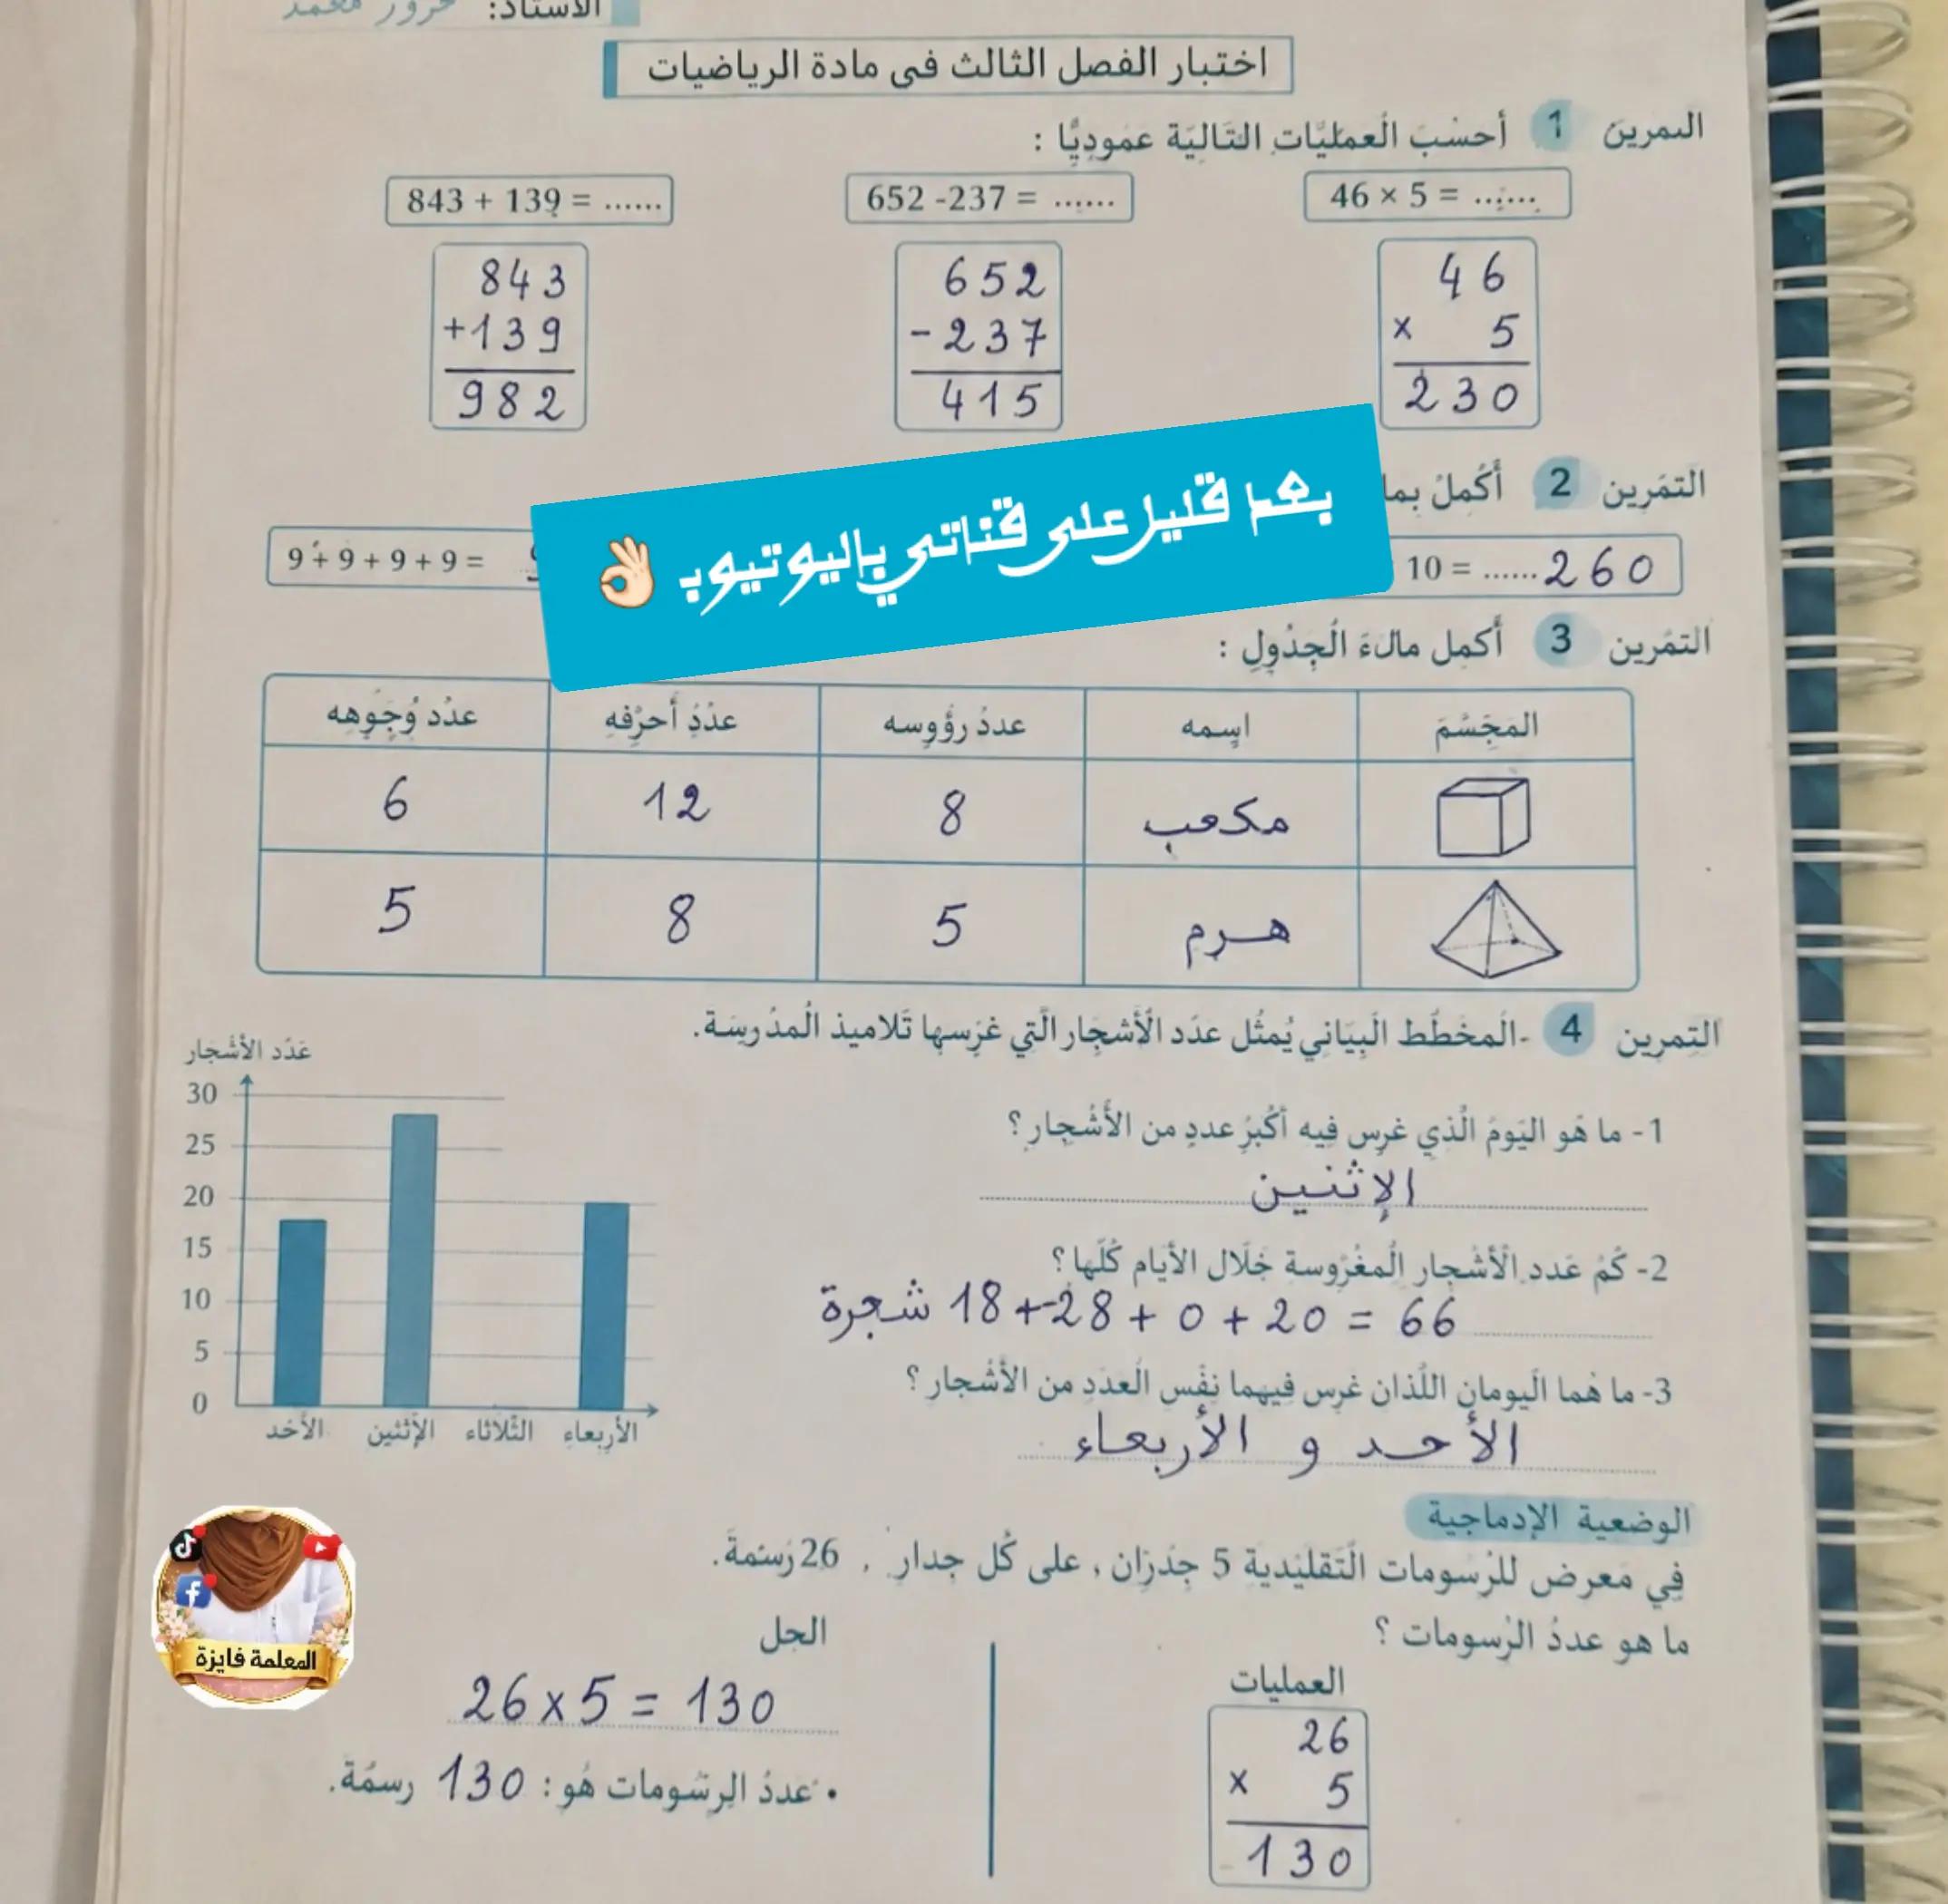 الأستاذ:
اختبار الفصل الثالث في مادة الرياضيات
التمرين 1 أحسب العمليات التالية عموديا :
46 × 5 = ......
652 -237 = ......
843 + 139 = ......
46
× 5
230
652
- 237
415
843
+139
982
التمرين 2 أكمل بما
10 = ......260
9 + 9 + 9 + 9 =
بعد قليل على قناتي باليوتيوب 👌🏻
التمرين 3 أكمل مالء الجدول :
المجسم اسمه عدد رؤوسه عدد أحرفه عدد وجوهه
مكعب 8 12 6
هرم 5 8 5
التمرين 4 -المخطط البياني يمثل عدد الأشجار التي غرسها تلاميذ المدرسة.
عدد الأشجار
30
25
20
15
10
5
0
الأحد الإثنين الثلاثاء الأربعاء
1- ما هو اليوم الذي غرس فيه أكبر عدد من الأشجار؟
الإثنين
2- كم عدد الأشجار المغروسة خلال الأيام كلها؟
18+28+0+20=66 شجرة
3- ما هما اليومان اللذان غرس فيهما نفس العدد من الأشجار؟
الأحد و الأربعاء
الوضعية الإدماجية
في معرض للرسومات التقليدية 5 جدران، على كل جدار , 26 رسمة.
ما هو عدد الرسومات ؟
العمليات
26
× 5
130
الحل
26×5 = 130
• عدد الرسومات هو: 130 رسمة.
المعلمة فايزة